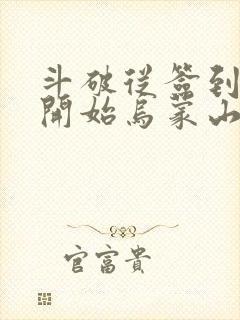 斗破从签到
開始烏蒙山
官富貴